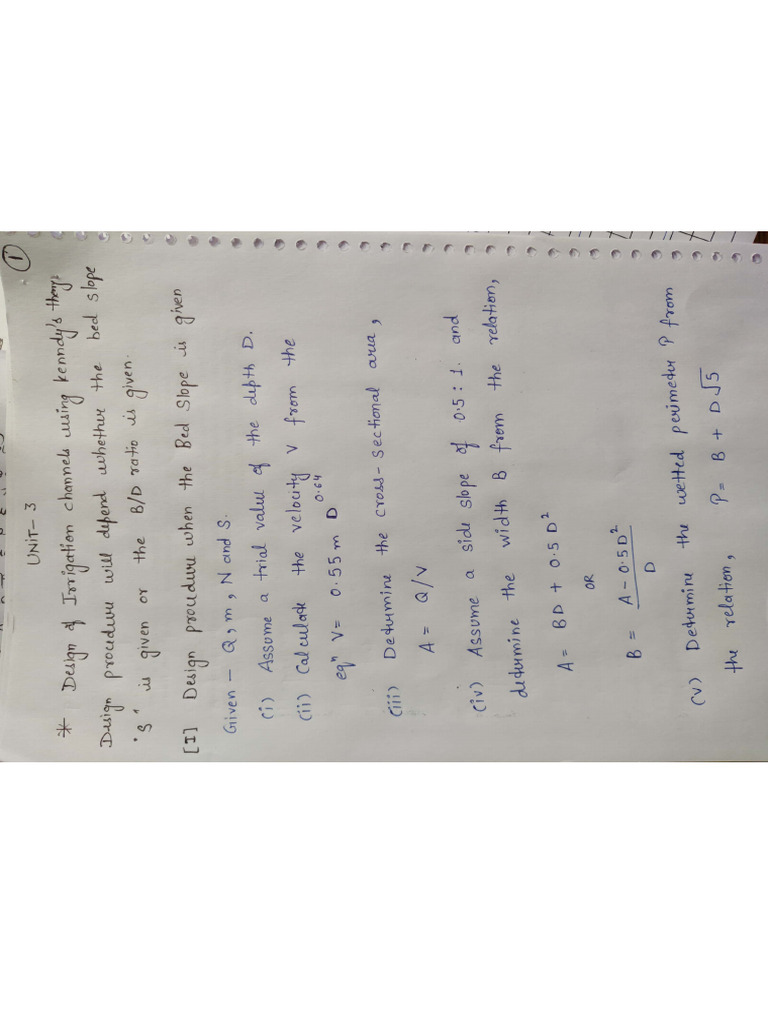 ①
UNIT-3
* Design of Irrigation channels using Kenndy's theory:
Design procedure will depend whether the bed slope
"S" is given or the B/D ratio is given.
[I] Design procedure when the Bed Slope is given
Given - Q, m, N and S.
(i) Assume a trial value of the depth D.
(ii) Calculate the velocity V from the
eqⁿ V = 0.55 m D^0.64
(iii) Determine the cross-sectional area,
A = Q/V
(iv) Assume a side slope of 0.5 : 1. and
determine the width B from the relation,
A = BD + 0.5 D²
OR
B = (A - 0.5 D²) / D
(v) Determine the wetted perimeter P from
the relation, P = B + D√5